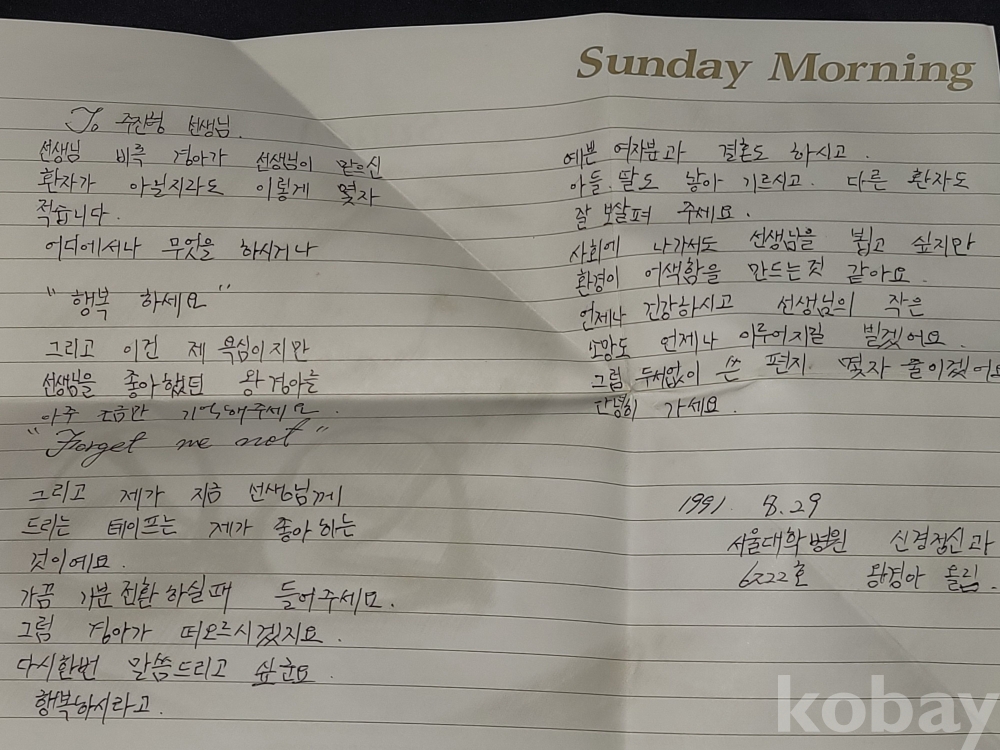 Sunday Morning
To 주진형 선생님.
선생님 비록 경아가 선생님이 맡으신
환자가 아닐지라도 이렇게 몇자
적습니다.
어디에서나 무엇을 하시거나
"행복 하세요"
그리고 이건 제 욕심이지만
선생님을 좋아했던 왕경아를
아주 조금만 기억해주세요.
"Forget me not"
그리고 제가 지금 선생님께
드리는 테이프는 제가 좋아하는
것이에요.
가끔 기분전환 하실때 들어주세요.
그럼 경아가 떠오르시겠지요.
다시한번 말씀드리고 싶군요.
행복하시라고.
예쁜 여자분과 결혼도 하시고.
아들.딸도 낳아 기르시고. 다른 환자도
잘 보살펴 주세요.
사회에 나가서도 선생님을 뵙고 싶지만
환경이 어색함을 만드는것 같아요.
언제나 건강하시고 선생님의 작은
소망도 언제나 이루어지길 빌겠어요.
그럼 두서없이 쓴 편지. 몇자 줄이겠어요
안녕히 가세요.
1991. 8.29
서울대학병원 신경정신과
6222호 왕경아 올림.
kobay